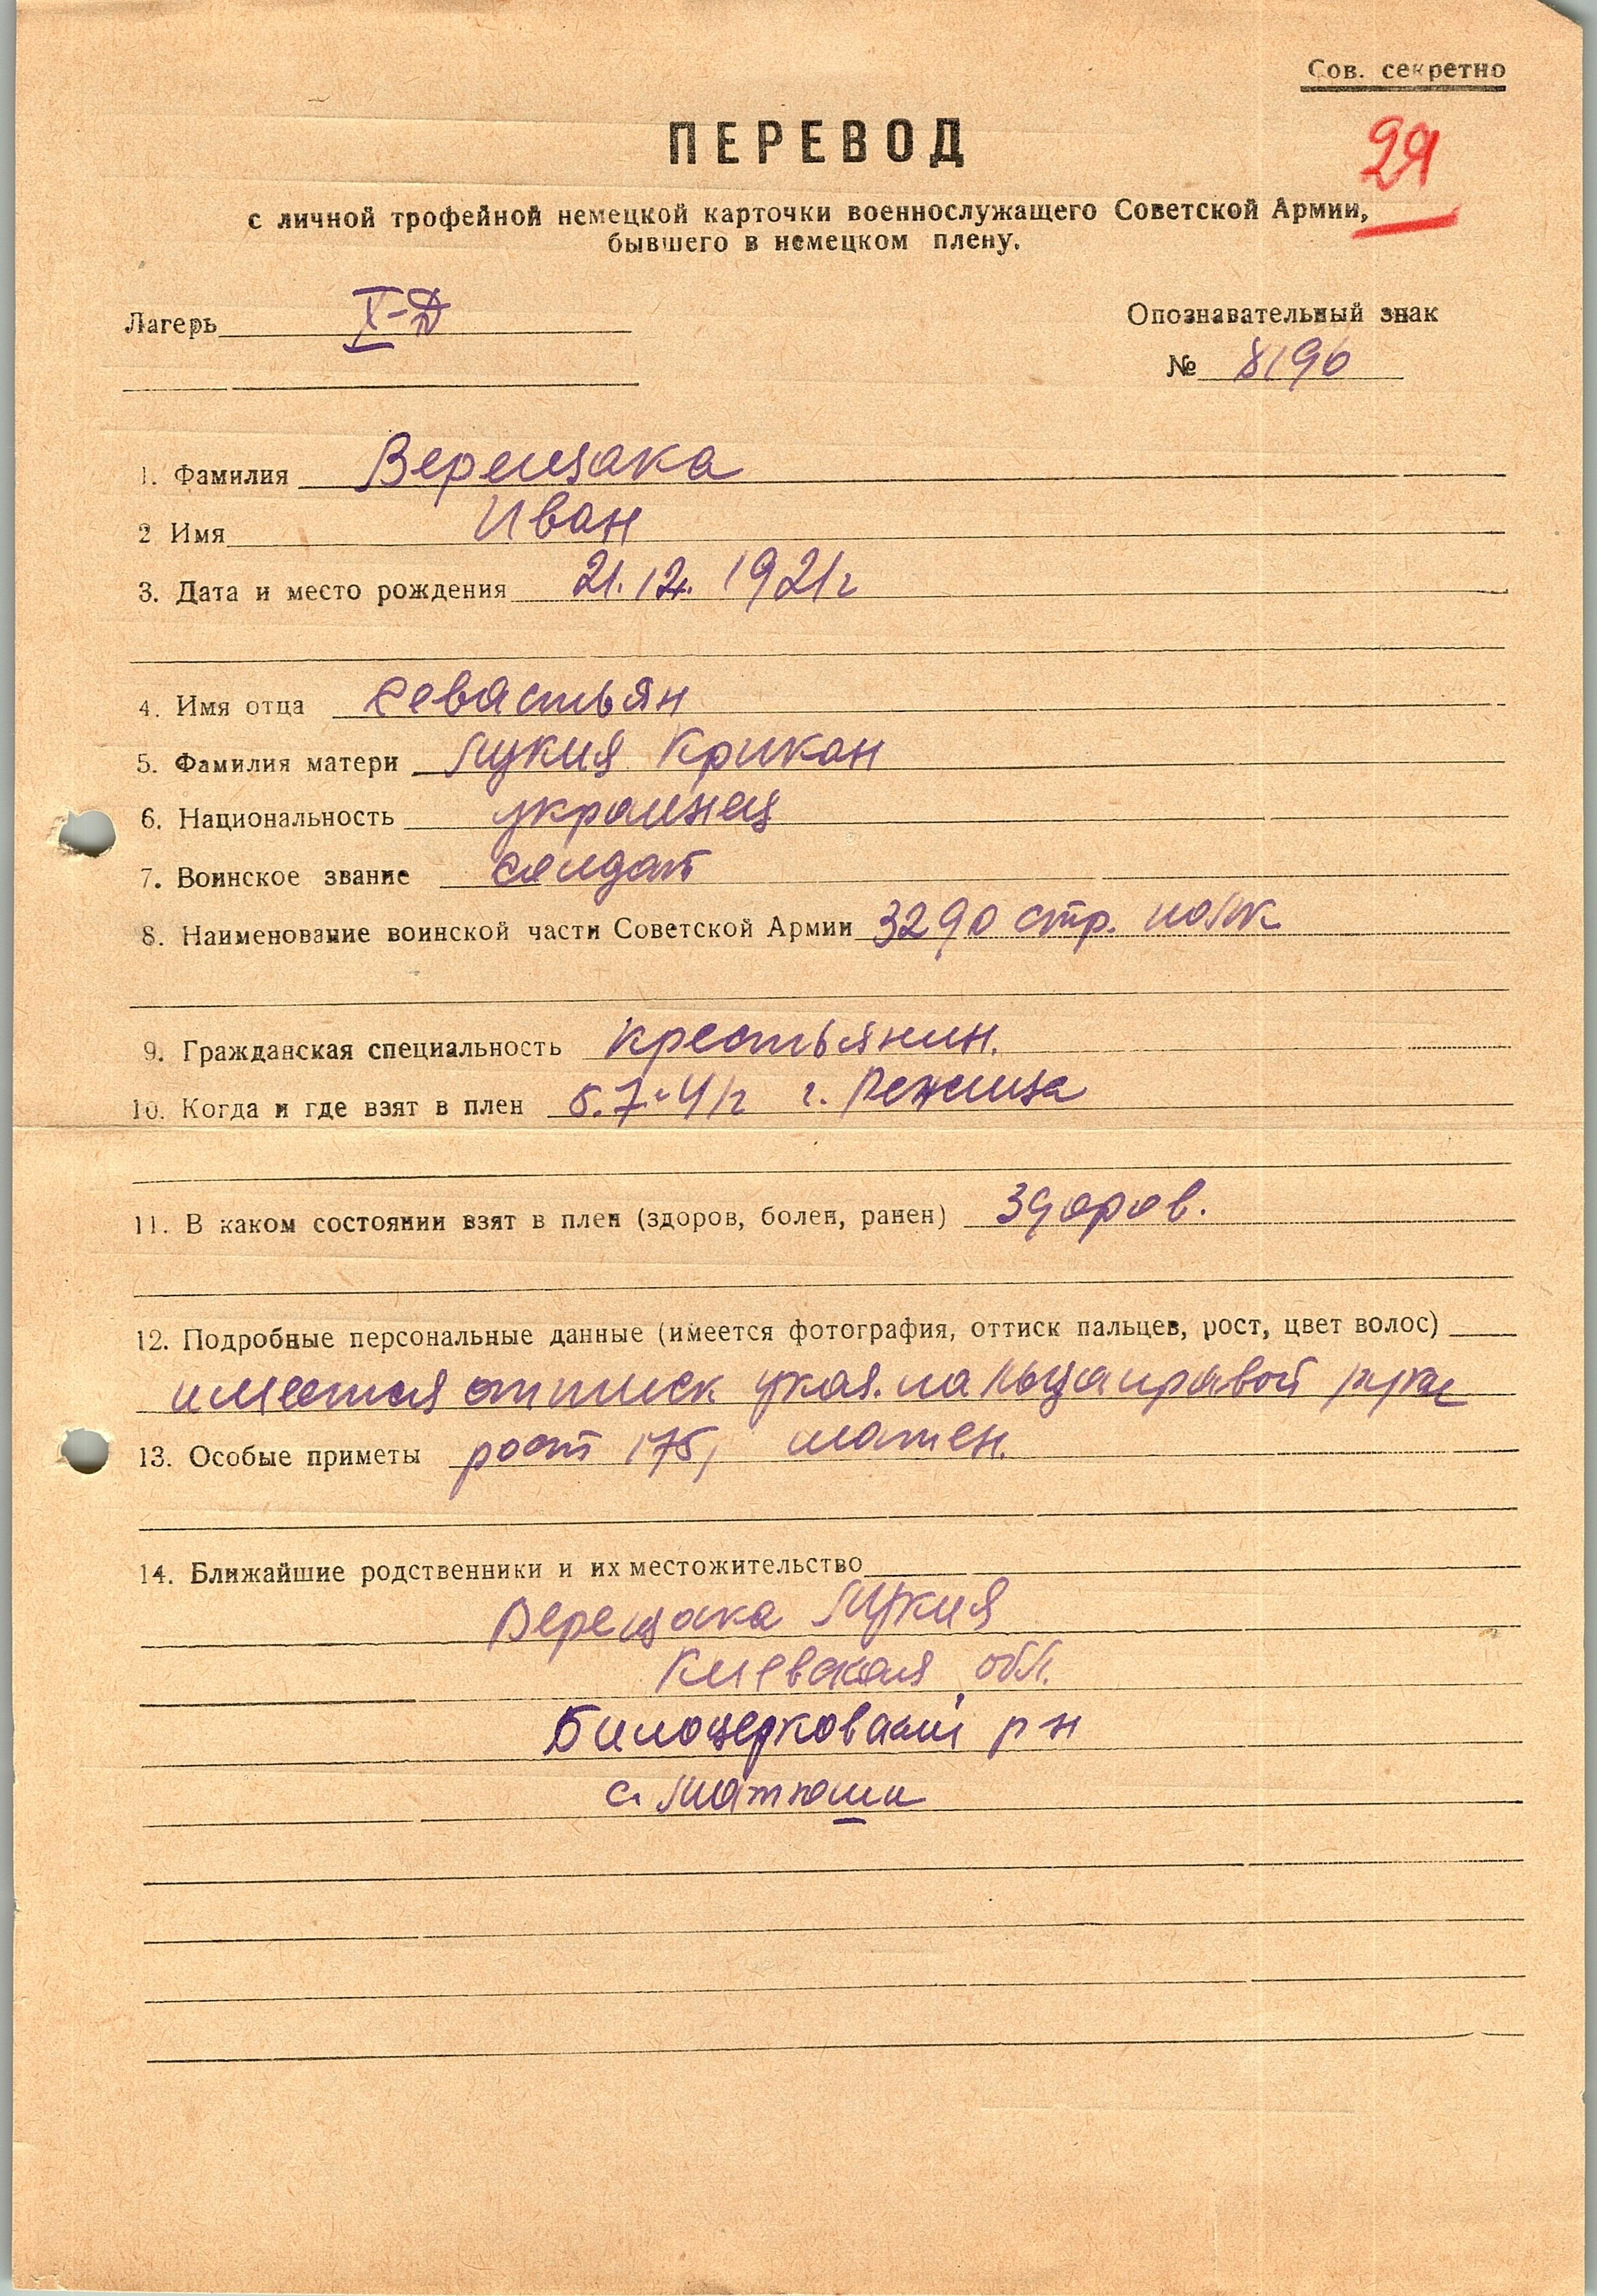 Сов. секретно
29
ПЕРЕВОД
с личной трофейной немецкой карточки военнослужащего Советской Армии,
бывшего в немецком плену.
Лагерь X-Д
Опознавательный знак
№ 8196
1. Фамилия Верещака
2 Имя Иван
3. Дата и место рождения 21.12. 1921г
4. Имя отца Севастьян
5. Фамилия матери Лукия Крикан
6. Национальность украинец
7. Воинское звание солдат
8. Наименование воинской части Советской Армии 3290 стр. полк
9. Гражданская специальность крестьянин.
10. Когда и где взят в плен 5.7.41г г. Режица
11. В каком состоянии взят в плен (здоров, болен, ранен) здоров.
12. Подробные персональные данные (имеется фотография, оттиск пальцев, рост, цвет волос)
имеется оттиск указ. пальца правой руки
13. Особые приметы рост 175,
14. Ближайшие родственники и их местожительство
Верещака Лукия
Киевская обл.
Билоцерковский р-н
с. Матюши